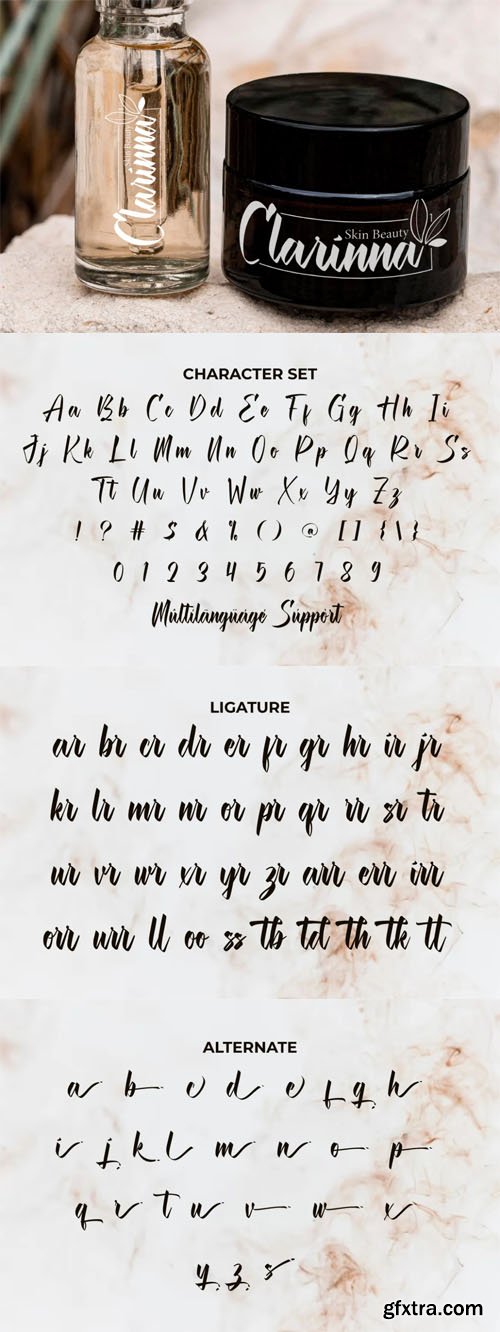 Skin Beauty
Clarinna
Skin Beauty
Clarinna
CHARACTER SET
Aa Bb Cc Dd Ee Ff Gg Hh Ii
Jj Kk Ll Mm Nn Oo Pp Qq Rr Ss
Tt Uu Vv Ww Xx Yy Zz
! ? # $ & % ( ) @ [ ] { \ }
0 1 2 3 4 5 6 7 8 9
Múltilängüagé Súppört
LIGATURE
ar br cr dr er fr gr hr ir jr
kr lr mr nr or pr qr rr sr tr
ur vr wr xr yr zr arr err irr
orr urr ll oo ss tb td th tk tt
ALTERNATE
a b c d e f g h
i j k l m n o p
q r t u v w x
y z s
gfxtra.com